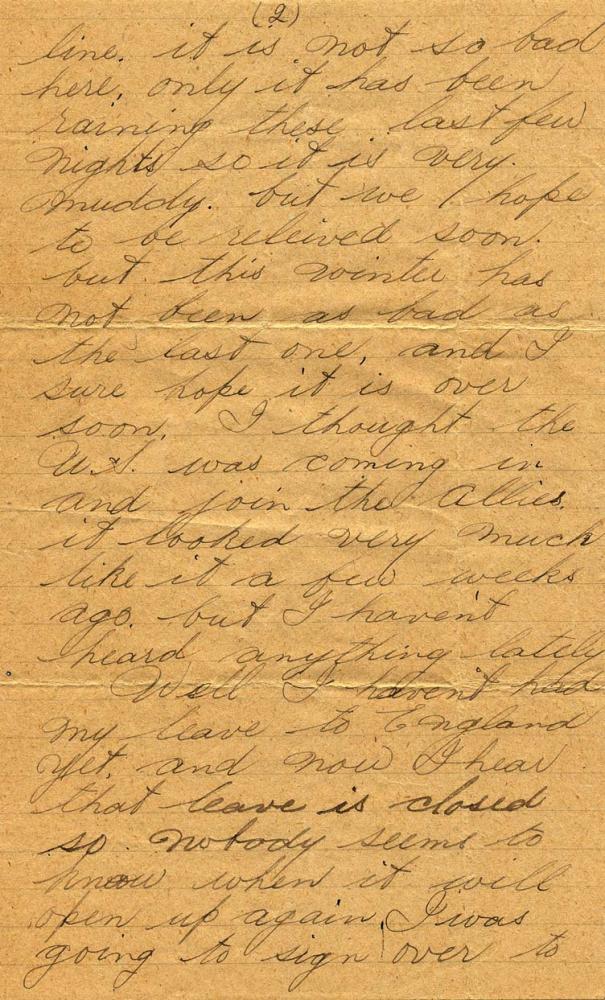 (2)
line. it is not so bad
here, only it has been
raining these last few
nights so it is very.
muddy. but we hope
to be releived soon.
but this winter has
not been as bad as
the last one, and I
sure hope it is over
soon. I thought the
U.S. was coming in
and join the Allies.
it looked very much
like it a few weeks
ago. but I havent
heard anything lately
Well I haven't had
my leave to England
yet, and now I hear
that leave is closed
so nobody seems to
know when it will
open up again, I was
going to sign over to